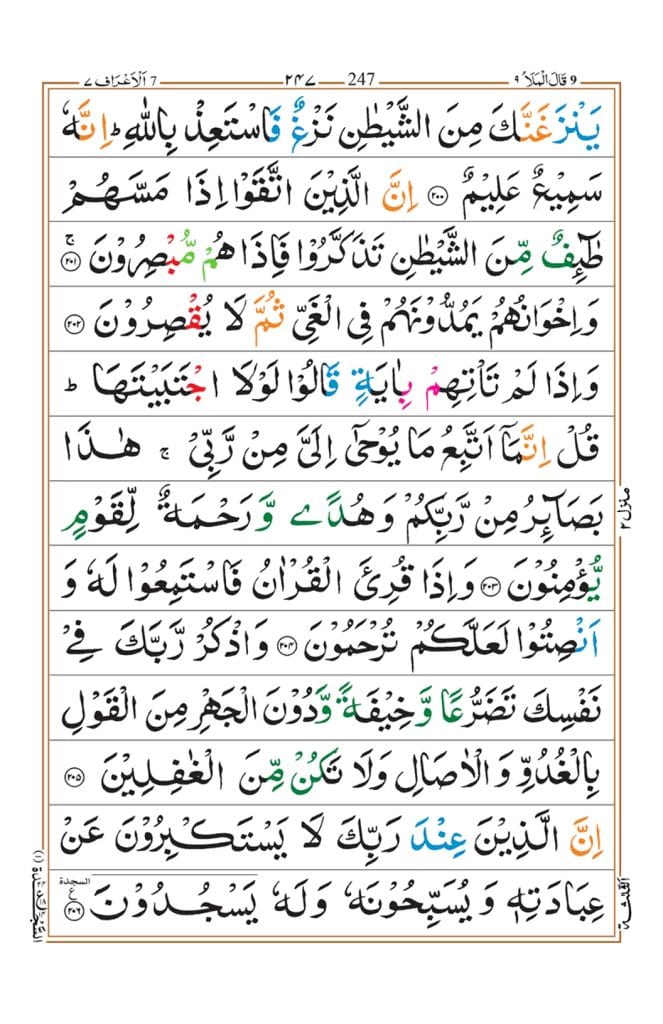 ٩ قَالَ الْمَلَاُ 9 247 ٢٤٧ اَلْاَعْرَاف ٧ 7
يَنْزَغَنَّكَ مِنَ الشَّيْطٰنِ نَزْغٌ فَاسْتَعِذْ بِاللّٰهِ ؕ اِنَّهٗ
سَمِيْعٌ عَلِيْمٌ ﴿۲۰۰﴾ اِنَّ الَّذِيْنَ اتَّقَوْا اِذَا مَسَّهُمْ
طٰٓئِفٌ مِّنَ الشَّيْطٰنِ تَذَكَّرُوْا فَاِذَا هُمْ مُّبْصِرُوْنَ ۚ ﴿۲۰۱﴾
وَاِخْوَانُهُمْ يَمُدُّوْنَهُمْ فِى الْغَىِّ ثُمَّ لَا يُقْصِرُوْنَ ﴿۲۰۲﴾
وَاِذَا لَمْ تَاْتِهِمْ بِاٰيَةٍ قَالُوْا لَوْلَا اجْتَبَيْتَهَا ؕ
قُلْ اِنَّمَاۤ اَتَّبِعُ مَا يُوْحٰٓى اِلَىَّ مِنْ رَّبِّىْ ۚ هٰذَا
بَصَآئِرُ مِنْ رَّبِّكُمْ وَهُدًى وَّ رَحْمَةٌ لِّقَوْمٍ
يُّؤْمِنُوْنَ ﴿۲۰۳﴾ وَاِذَا قُرِئَ الْقُرْاٰنُ فَاسْتَمِعُوْا لَهٗ وَ
اَنْصِتُوْا لَعَلَّكُمْ تُرْحَمُوْنَ ﴿۲۰۴﴾ وَاذْكُرْ رَّبَّكَ فِىْ
نَفْسِكَ تَضَرُّعًا وَّخِيْفَةً وَّدُوْنَ الْجَهْرِ مِنَ الْقَوْلِ
بِالْغُدُوِّ وَالْاٰصَالِ وَلَا تَكُنْ مِّنَ الْغٰفِلِيْنَ ﴿۲۰۵﴾
اِنَّ الَّذِيْنَ عِنْدَ رَبِّكَ لَا يَسْتَكْبِرُوْنَ عَنْ
عِبَادَتِهٖ وَيُسَبِّحُوْنَهٗ وَلَهٗ يَسْجُدُوْنَ ۩ ﴿۲۰۶﴾
السجدة ع
منزل ٢